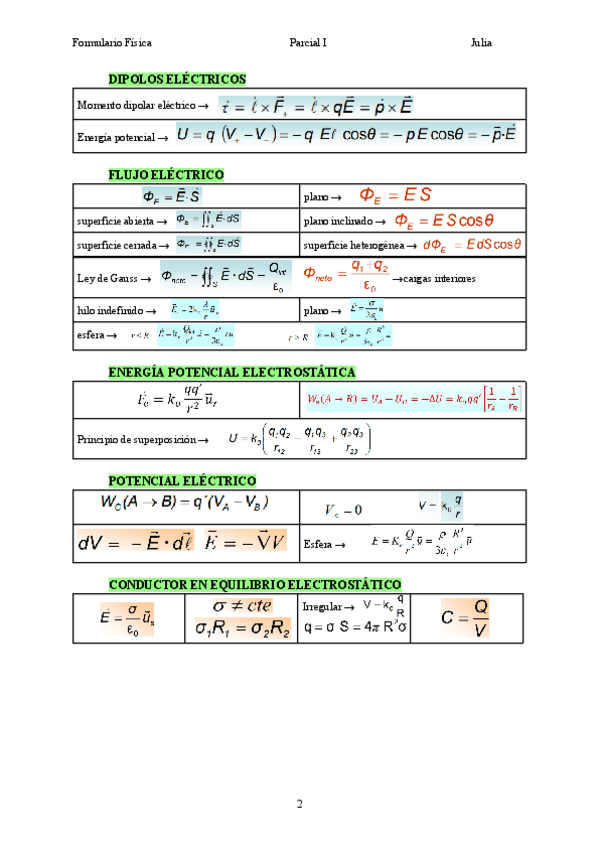 Formulario Física Parcial I Julia
DIPOLOS ELÉCTRICOS
Momento dipolar eléctrico → τ⃗ = ℓ⃗ × F⃗₊ = ℓ⃗ × qE⃗ = p⃗ × E⃗
Energía potencial → U = q (V₊ − V₋) = − q Eℓ cosθ = − p E cosθ = − p⃗·E⃗
FLUJO ELÉCTRICO
Φ_E = E⃗·S⃗ plano → Φ_E = E S
superficie abierta → plano inclinado → Φ_E = E S cosθ
superficie cerrada → superficie heterogénea → dΦ_E = E dS cosθ
Ley de Gauss → Φ_neto = ∯_S E⃗·dS⃗ = Q_int/ε₀ Φ_neto = (q₁+q₂)/ε₀ →cargas interiores
hilo indefinido → plano →
esfera → r < R r > R
ENERGÍA POTENCIAL ELECTROSTÁTICA
k₀ qq'/r² u⃗ᵣ
Principio de superposición → U = k₀ (q₁q₂/r₁₂ + q₁q₃/r₁₃ + q₂q₃/r₂₃)
POTENCIAL ELÉCTRICO
W_C(A → B) = q´(V_A − V_B) = 0 V = k₀ q/r
dV = − E⃗ • dℓ⃗ E⃗ = −∇⃗V Esfera →
CONDUCTOR EN EQUILIBRIO ELECTROSTÁTICO
E⃗ = σ/ε₀ u⃗ₛ σ ≠ cte Irregular → V = k₀ q/R C = Q/V
σ₁R₁ = σ₂R₂ q = σ S = 4π R²σ
2